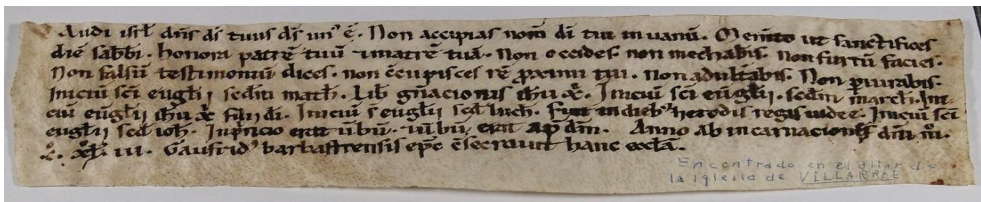 Audi isrł dñs ds̄ tuus ds̄ un⁹ ē. Non accipias nom̄ dī tui in vanū. Memto ut sanctifices
diē sabbi. honora patrē tuū ⁊ matrē tuā. Non occides. non mechabis. non furtū facies.
Non falsū testimoniū dices. non c̄cupisces rē proximi tui. Non adultabis. Non piurabis.
Iniciū sc̄i euglii sedm̄ math̄. Lib gn̄acionis ihu xp̄i. Iniciū sc̄i euglii. sedm̄ march̄. Ini
ciū euglii ihu xp̄i filii dī. Iniciū s̄ euglii sed̄ luch̄. Fuit in dieb⁹ herodis regis iudee. Iniciū sc̄i
euglii sed̄ ioh̄. In pncio erat ūbū. ⁊ ūbū erat ap̄ dm̄. Anno ab incarnacione dn̄i m̄.
c̄. xł. iii. Gaufrid⁹ barbastrensis ep̄c c̄secravit hanc eccłam.
Encontrado en el altar de
la iglesia de VILLARRUE